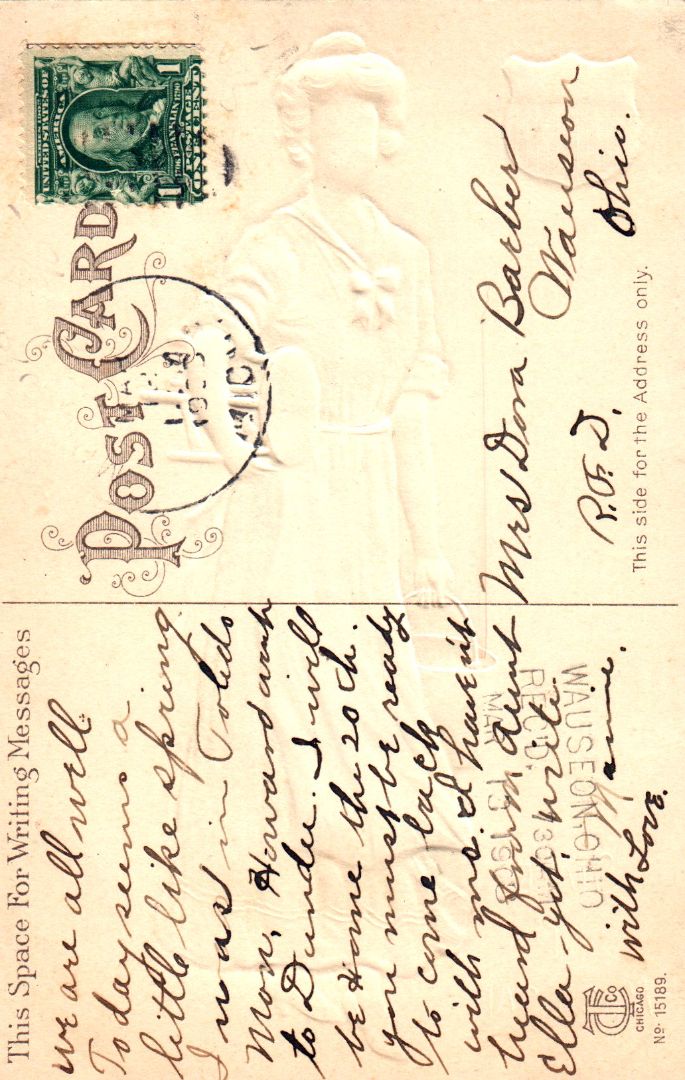 This Space For Writing Messages
we are all well
Today seems a
little like spring
I was in Toledo
Mon, Howard went
to Dundee. I will
be Home the 20th.
you must be ready
to come back
with me. I haven't
heard from Aunt
Ella - yet, write.
with Love. Mamie.
POST CARD
SERIES 1902
UNITED STATES OF
AMERICA
1790 FRANKLIN 1790
POSTAGE
ONE CENT
1
1
MICH
Mrs Dora Barber
Wauseon
R.F.D. Ohio.
This side for the Address only.
WAUSEON, OHIO
REC'D.
MAR 13
CO
CHICAGO
No. 15189.